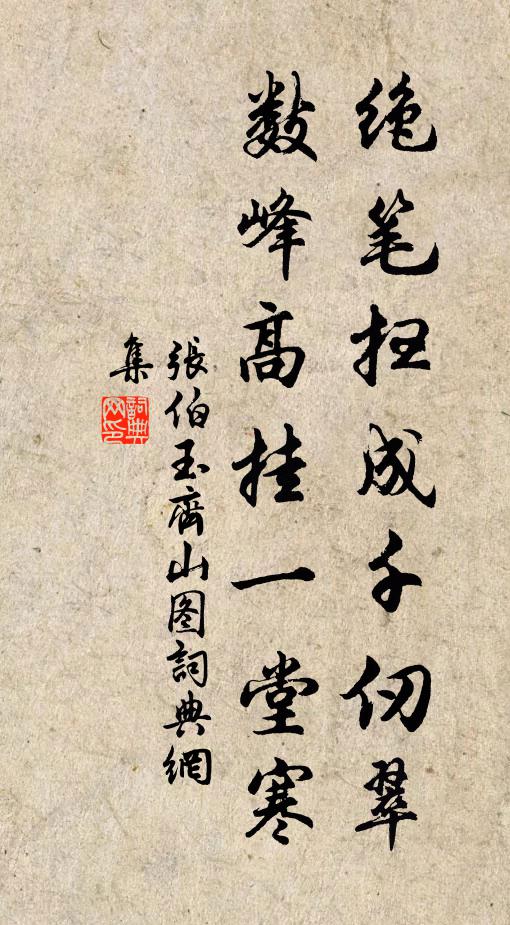 绝笔扫成千仞翠
数峰高挂一堂寒
張伯玉齊山图詞典網
集
詞典
网印